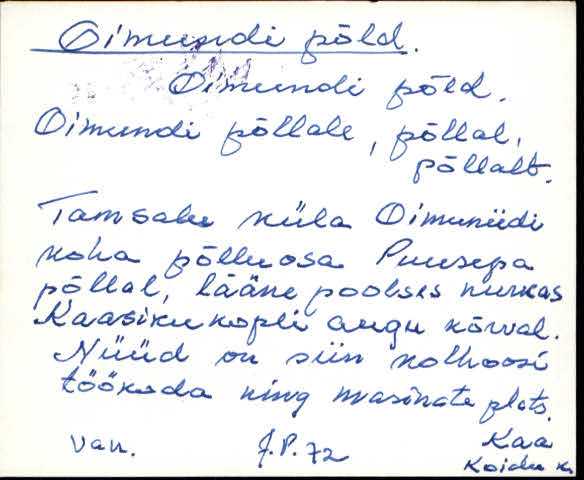 Oimundi põld.
Oimundi põld.
Oimundi põllale, põllal,
põllalt.
Tamsalu küla Oimuniidi
koha põlluosa Puusepa
põllal, lääne poolses nurkas
Kaasiku kopli augu kõrval.
Nüüd on siin kolhoosi
töökoda ning masinate plats.
van. J.P. 72 Kaa
Koidu k.